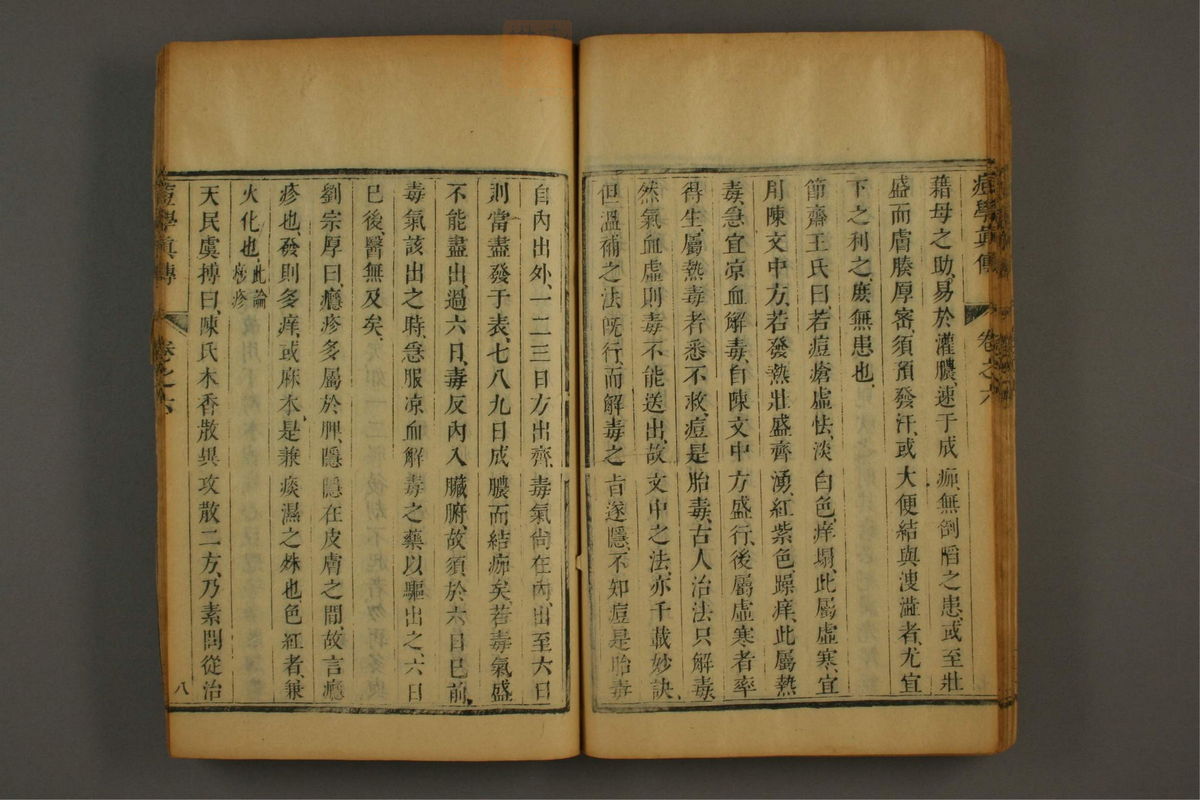 痘學眞傳 卷之六
藉母之助、易於灌膿、速于成痂、無倒陷之患、或至壯
盛而膚腠厚密、須預發汗、或大便結與溲澁者、尤宜
下之利之、庶無患也、
節齋王氏曰、若痘瘡虛怯、淡白色、痒塌、此屬虛寒、宜
用陳文中方、若發熱壯盛齊湧、紅紫色、躁痒、此屬熱
毒、急宜凉血解毒、自陳文中方盛行、後屬虛寒者率
得生、屬熱毒者悉不救、痘是胎毒、古人治法只解毒、
然氣血虛則毒不能送出、故文中之法、亦千載妙訣、
但溫補之法旣行、而解毒之旨遂隱、不知痘是胎毒
自內出外、一二三日方出齊、毒氣尙在內、出至六日
則當盡發于表、七八九日成膿而結痂矣、若毒氣盛
不能盡出、過六日、毒反內入臟腑、故須於六日已前、
毒氣該出之時、急服凉血解毒之藥以驅出之、六日
已後、醫無及矣、
劉宗厚曰、癮疹多屬於脾、隱隱在皮膚之間、故言癮
疹也、發則多痒或麻木、是兼痰濕之殊也色紅者、兼
火化也、此論㾦疹
天民虞摶曰、陳氏木香散異攻散二方、乃素問從治
痘學眞傳 卷之六 八